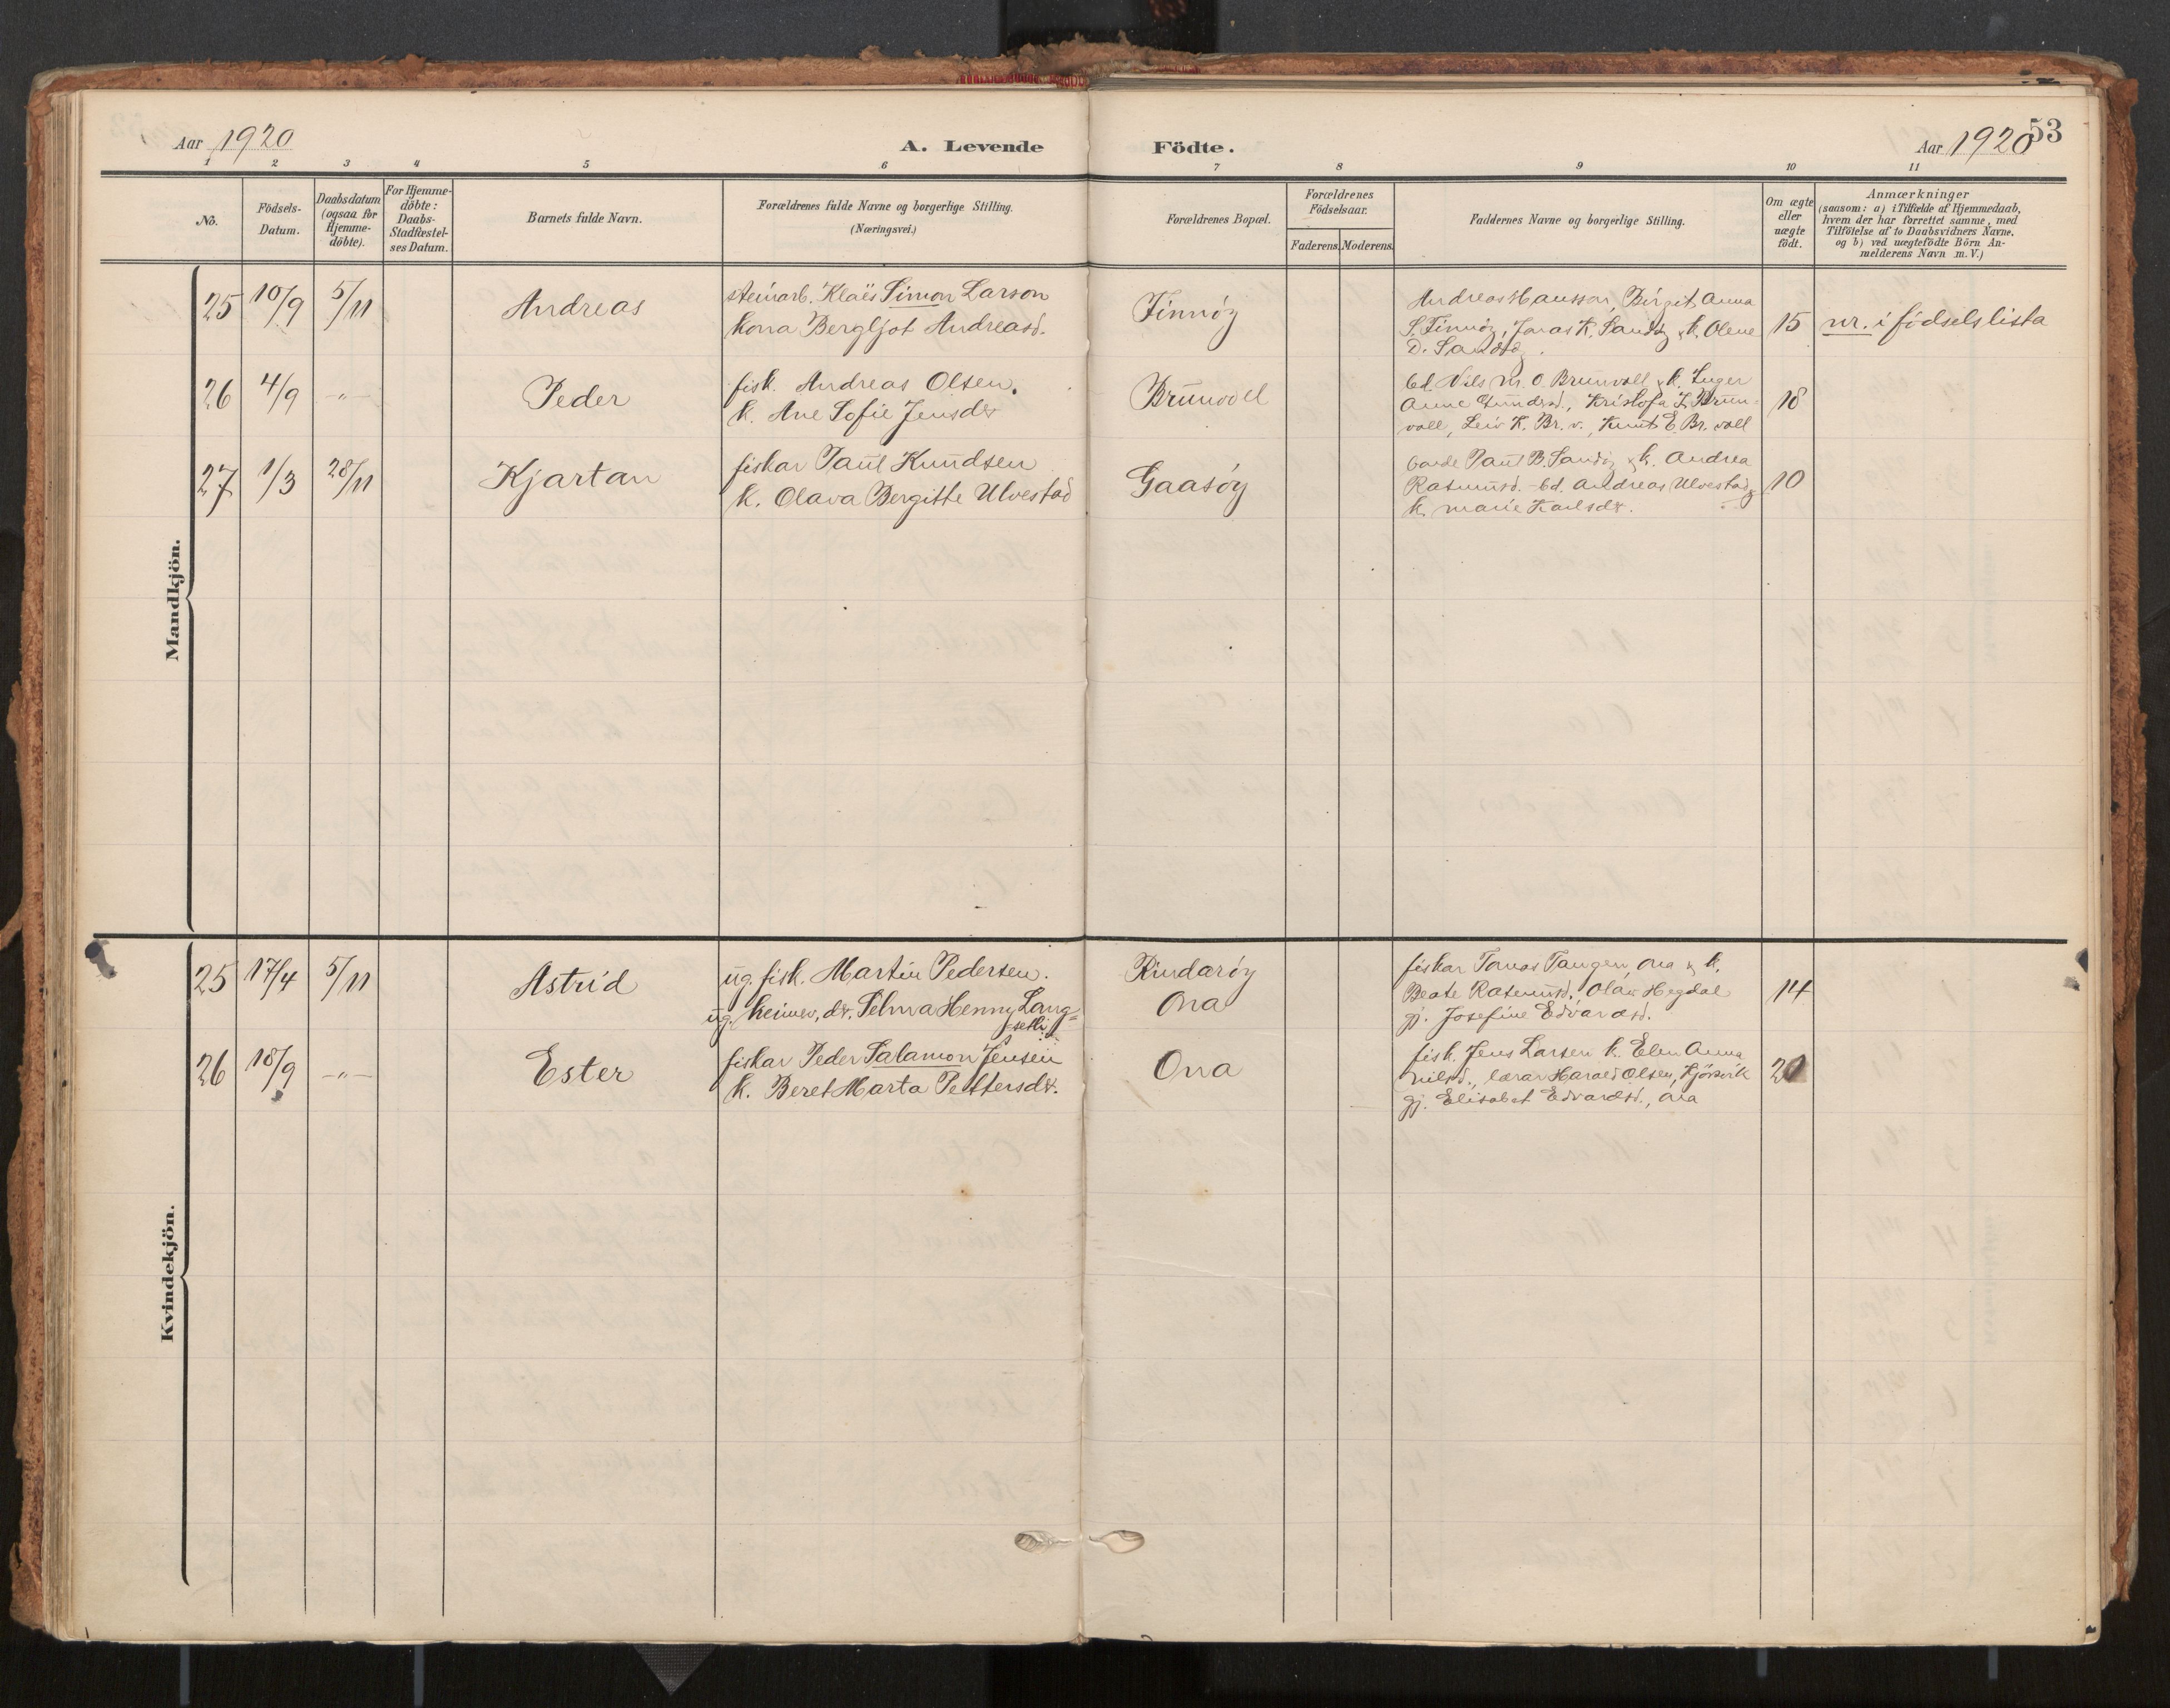 Aar 1920
A. Levende Födte.
Aar 1920
53
1 2 3 4 5 6 7 8 9 10 11
Nö.
Födsels-Datum.
Daabsdatum (ogsaa for Hjemme-döbte).
For Hjemme-döbte: Daabs-Stadfæstel-ses Datum.
Barnets fulde Navn.
Forældrenes fulde Navne og borgerlige Stilling.
(Næringsvei.)
Forældrenes Bopæl.
Forældrenes Födselsaar.
Faderens. Moderens.
Faddernes Navne og borgerlige Stilling.
Om ægte eller uægte födt.
Anmærkninger
(saasom: a) i Tilfælde af Hjemmedaab,
hvem der har forrettet samme, med
Tilföielse af to Daabsvidners Navne.
og b) ved uægtefödte Börn An-
melderens Navn m. V.)
Mandkjön.
25 10/9 5/11 Andreas
steinarb. Klaus Simon Larson
kona Bergljot Andreasd.
Finnöy
Andreas Hansson, Birgit Anna
S. Finnöy, Jonas K. Sandöy & k. Olene
D. Sandöy.
15 nr. i födselslista
26 4/9 -„- Peder
fisk. Andreas Olsen.
k. Ane Sofie Jensdtr
Brunvoll
bd. Nils M. O. Brunvoll & k. Inger
Anne Gundersd., Kristofa K. Brun-
voll, Leiv K. Br. v., Knut E. Br. voll
18
27 1/3 28/11 Kjartan
fiskar Paul Knudsen
k. Olava Bergitte Ulvestad
Gaasöy
Paul B. Sandöy & k. Andrea
Rasmusd. - bd. Andreas Ulvestad &
k. Marie Karlsdtr.
10
Kvindekjön.
25 17/4 5/11 Astrid
ug. fisk. Martin Pedersen.
ug. heimev. dtr. Selma Henny Lang-
setli
Rindaröy
Ona
fiskar Tomas Tangen, Ona & k.
Beate Rasmusd., Olav Hegdal
gj. Josefine Edvardsd.
14
26 18/9 -„- Ester
fiskar Peder Salamon Jensen
k. Beret Marta Pettersdtr.
Ona
fisk. Jens Larsen k. Elen Anna
Nilsd., lærar Harald Olsen, Kjörsvik
gj. Elisabet Edvardsd., Ona
20